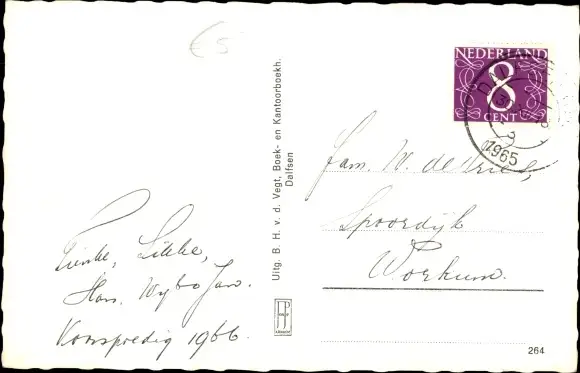 €5
NEDERLAND
8
CENT
DAL
1965
Uitg. B. H. v. d. Vegt, Boek- en Kantoorboekh.
Dalfsen
Fam. W. de Vries,
Spoordijk
Workum.
Sietske, Sikke,
Hans, Wybo Jan.
Voorspoedig 1966.
264